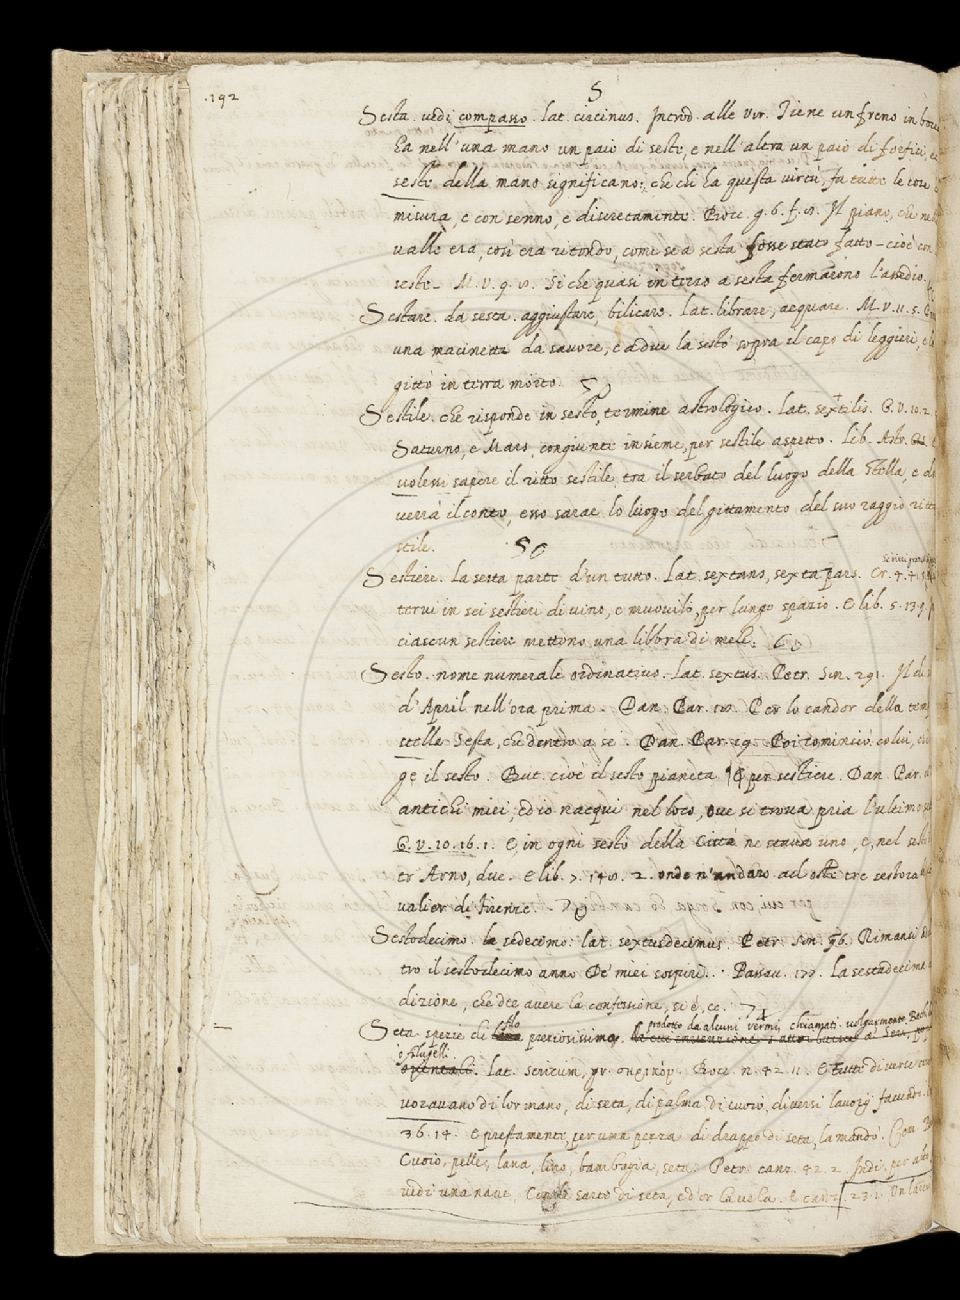 .192
S
Sesta. vedi compasso. lat. circinus. Introd. alle vir. Tiene un freno in bocca
ha nell'una mano un paio di seste, e nell'altra un paio di forfici,
seste della mano significano: che chi ha questa virtù, fa tutte le cose
misura, e con senno, e discretamente. Bocc. g. 6. f. Il piano, che ne
valle era, così era ritondo, come se a sesta fosse stato fatto - cioè con
seste - M. V. 9. Si che quasi in tirro a sesta fermarono l'assedio.
Sestare. da sesta. aggiustare, bilicare. lat. librare, aequare. M. V. 11. 5.
una macinetta da savore, e adue la sestò sopra il capo di leggieri, e
gittò in terra morto.
Sestile. che risponde in sesto, termine astrologico. lat. sextilis. G. V. 10. 2.
Saturno, e Mars, congiunti insieme, per sestile aspetto. Lib. Astr.
volessi sapere il ritto sestile, tra il serbato del luogo della stella, e
verrà il conto, esso sarae lo luogo del gittamento del suo raggio ritto
stile.
Sestiere. la sesta parte d'un tutto. lat. sextans, sexta pars. Cr. 4. 41.
tervi in sei sestieri di vino, e muovilo, per lungo spazio. E lib. 5. 13. 9.
ciascun sestiere mettono una libbra di mele.
Sesto. nome numerale ordinativo. lat. sextus. Petr. Son. 291. Il dì
d'April nell'ora prima. Dan. Par. Per lo candor della tem
stella Sesta, che dentro a sè. Dan. Par. Poi cominciò colui,
ge il sesto. But. cioè il sesto pianeta. ¶ E per sestiere. Dan. Par.
antichi miei, ed io nacqui nel loco, ove si trova pria l'ultimo
G. V. 10. 16. 1. E, in ogni sesto della Città ne stava uno, e, nel sesto
tr'Arno, due. E lib. 7. 2. onde n'andaro ad oste tre sestora
valier di Firenze.
Sestodecimo. sedecimo. lat. sextusdecimus. Petr. Son. 96. Rimansi
tro il sestodecimo anno De' miei sospiri. Passav. La sestadecima
dizione, che dee avere la confessione, si è, ec.
Seta. spezie di filo preziosissimo, prodotto da alcuni vermi, chiamati volgarmente
o filugelli.
Lat. sericum, gr. σηρικόν. Bocc. n. 42. 11. E tutte diverse
voravano di lor mano, di seta, di palma, di cuoio, diversi lavorij facendo.
36. 14. E prestamente, per una pezza di drappo di seta, la mandò.
Cuoio, pelle, lana, lino, bambagia, seta. Petr. canz. 42. 2. Indi per alto
vidi una nave, Con le sarte di seta, e d'or la vela. E canz. 23.